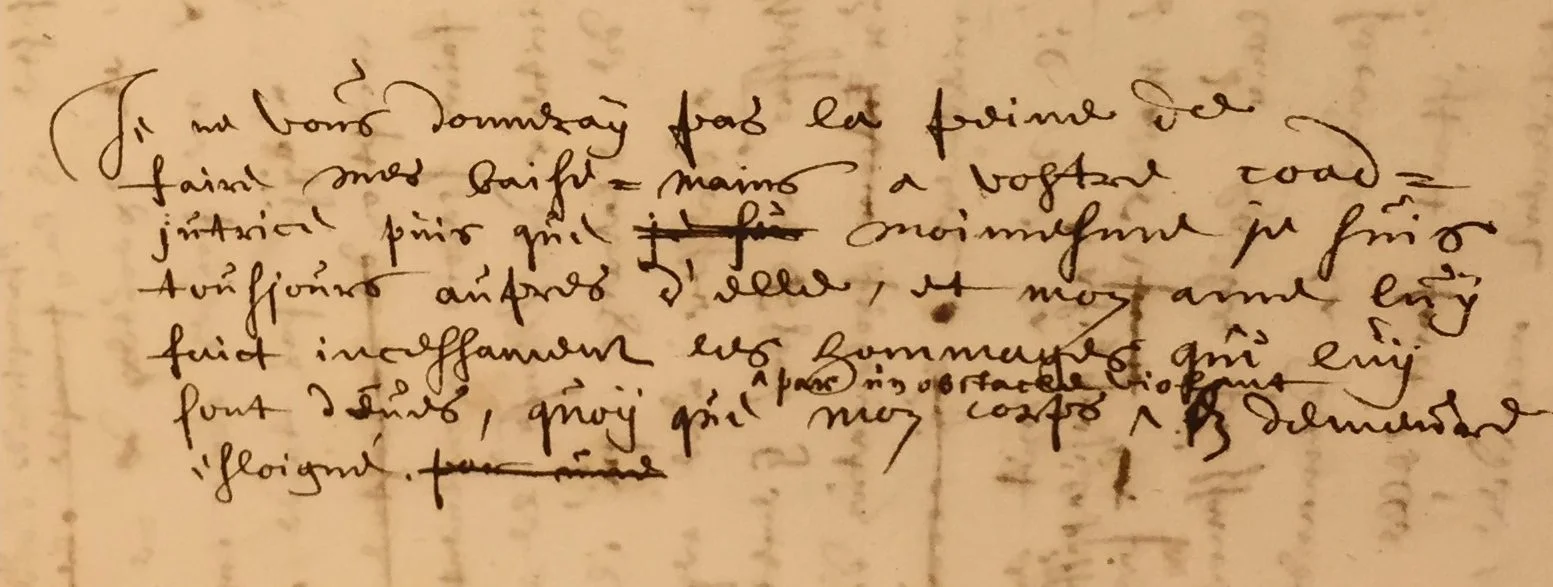 Je ne vous donneray pas la peine de
faire mes baise=mains a vostre coad=
jutrice puis que je sui moimesme je suis
tousjours aupres d'elle, et mon ame luy
faict incessament les hommages qui luy
par un obstacle violant
sont deues, quoy que mon corps en demeure
esloigné. par une